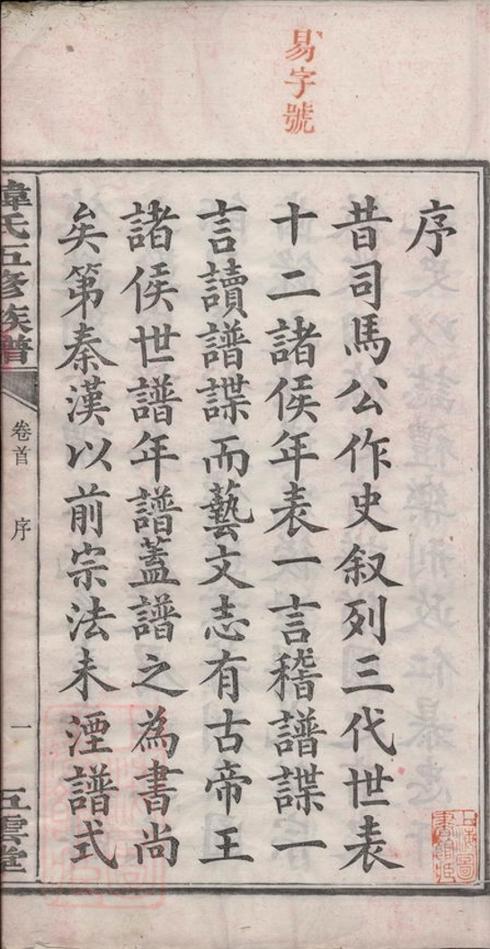 易字號
序
昔司馬公作史叙列三代世表
十二諸侯年表一言稽譜諜一
言讀譜諜而藝文志有古帝王
諸侯世譜年譜蓋譜之為書尚
矣第秦漢以前宗法未湮譜式
韋氏五修族譜
卷首
序
一
五雲堂